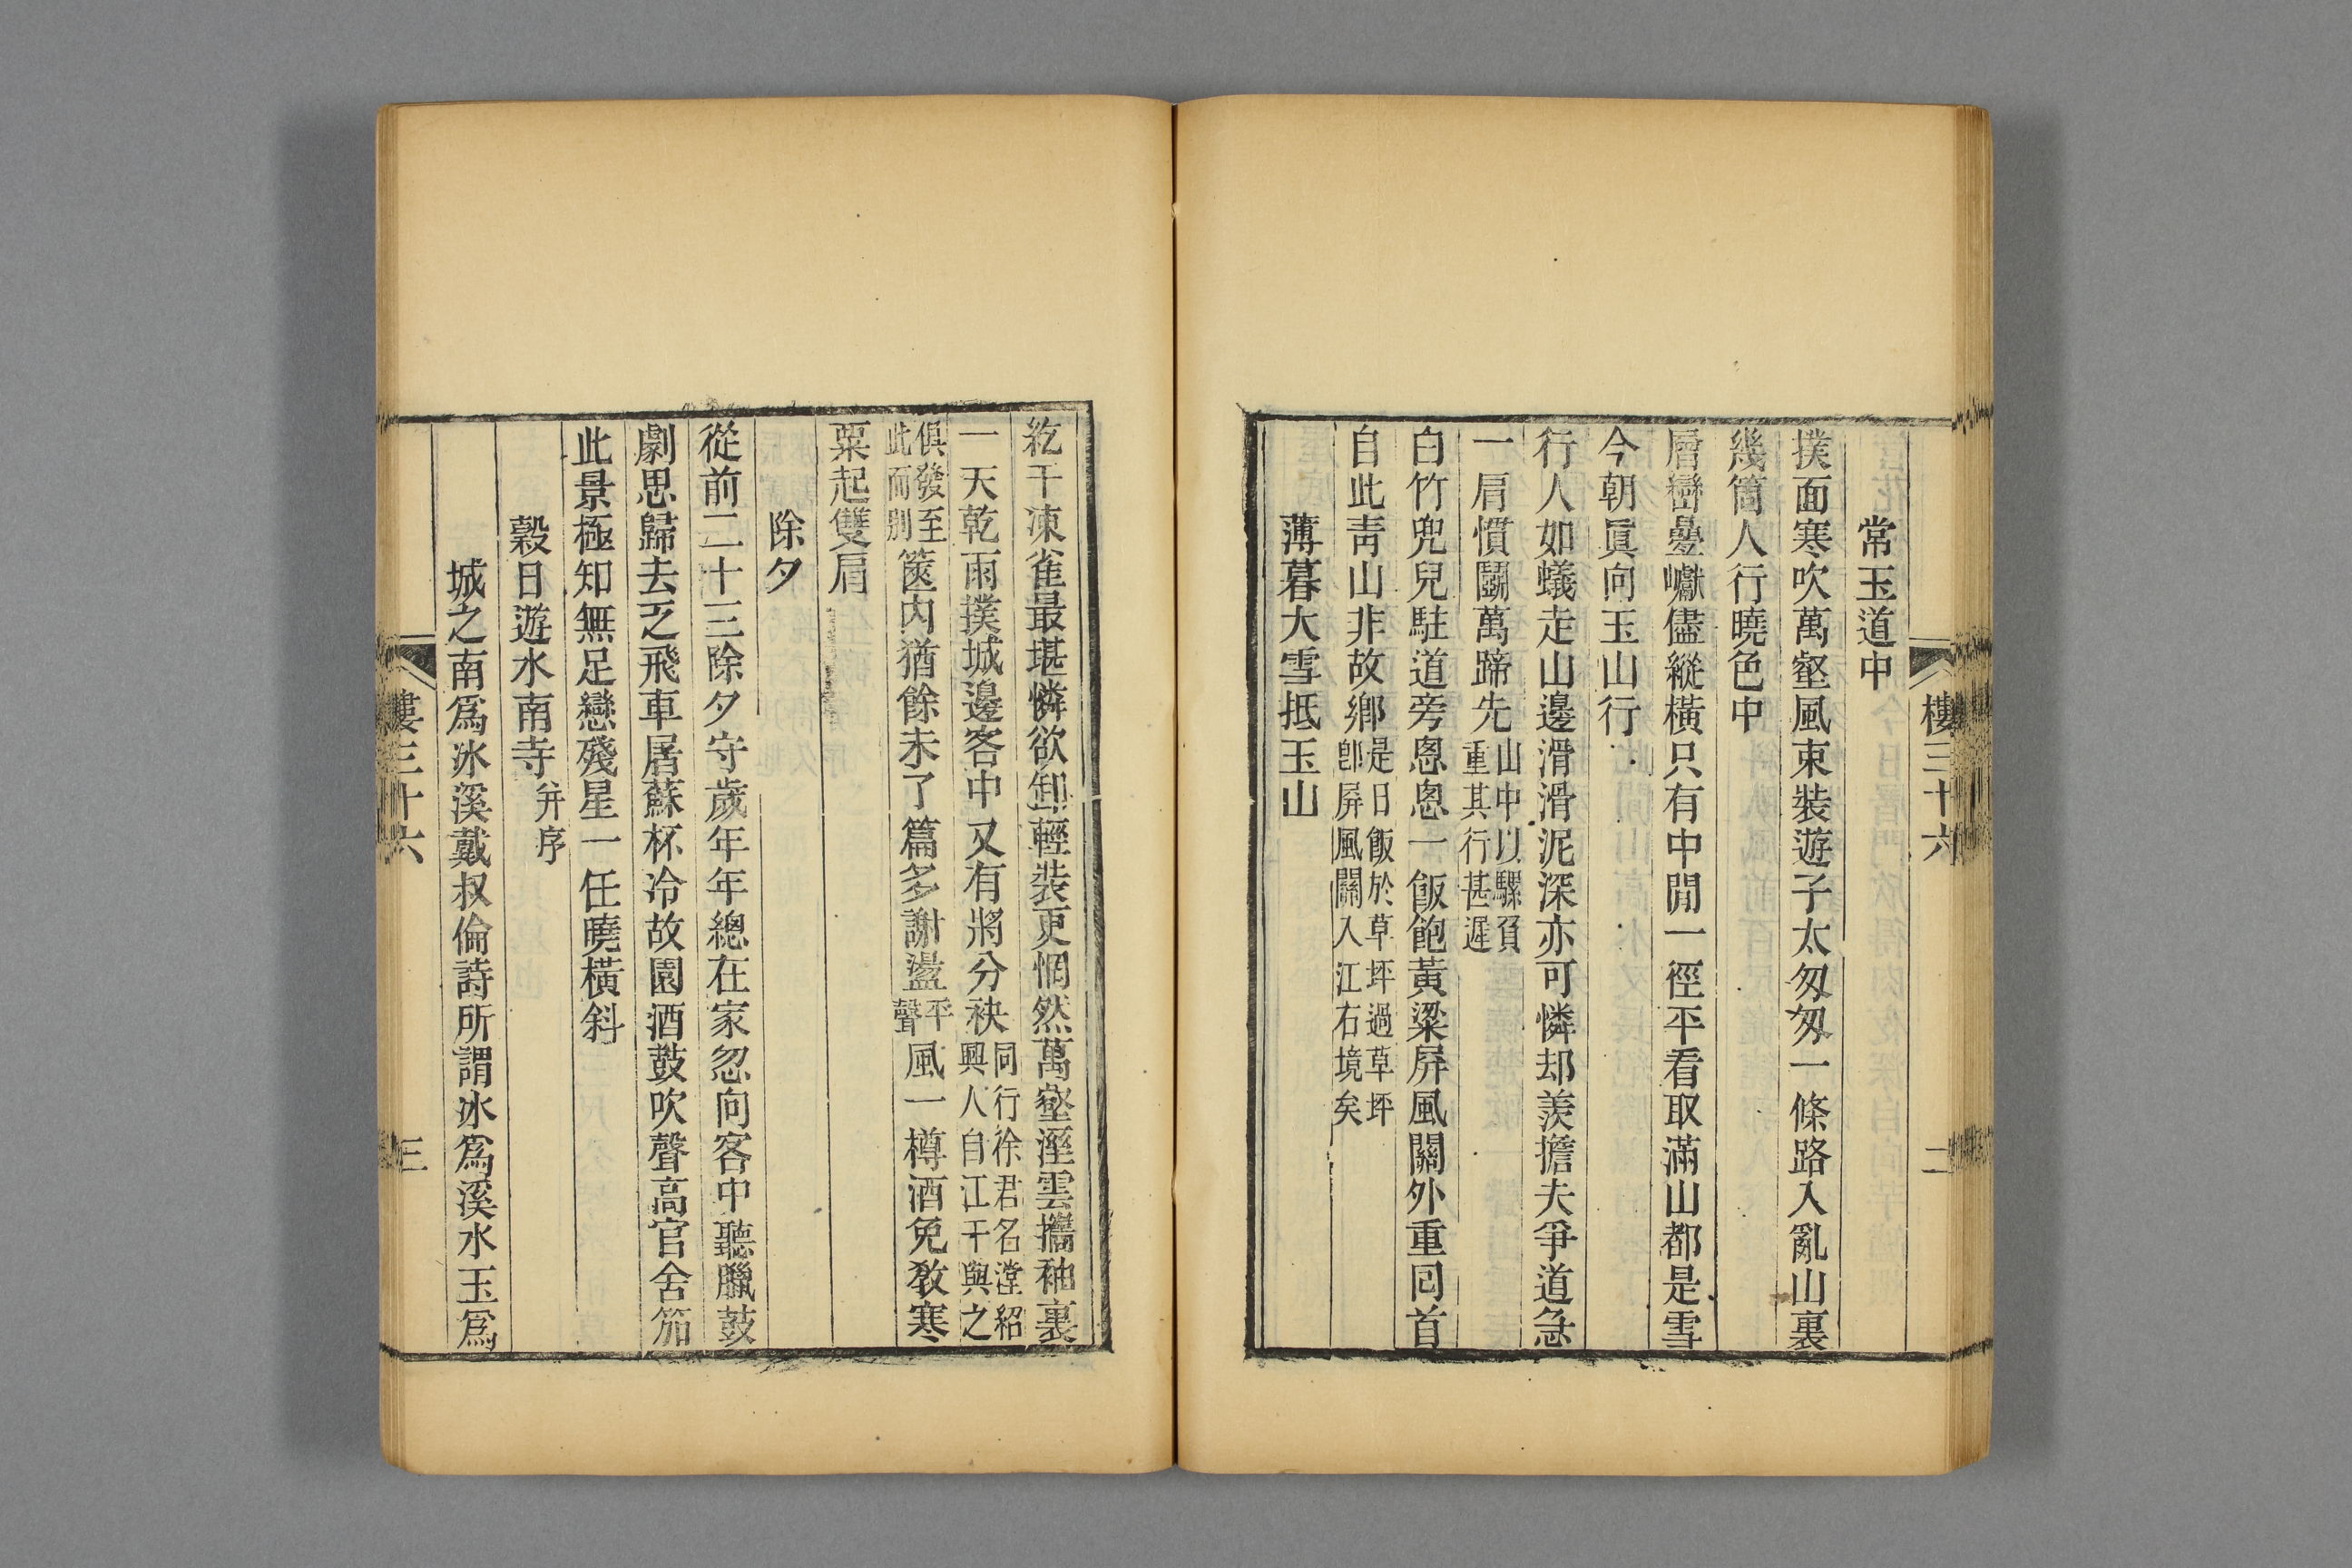 樓三十六
二
常玉道中
撲面寒吹萬壑風束裝遊子太匆匆一條路入亂山裏
幾箇人行曉色中
層巒疊巘儘縱橫只有中閒一徑平看取滿山都是雪
今朝眞向玉山行
行人如蟻走山邊滑滑泥深亦可憐却羨擔夫爭道急
一肩慣鬭萬蹄先山中以騾負
重其行甚遲
白竹兜兒駐道旁悤悤一飯飽黃粱屏風關外重囘首
自此靑山非故鄉是日飯於草坪過草坪
卽屛風關入江右境矣
薄暮大雪抵玉山
紇干凍雀最堪憐欲卸輕裝更惘然萬壑溼雲攜袖裏
一天乾雨撲城邊客中又有將分袂同行徐君名瀅紹
興人自江干與之
俱發至
此而別篋内猶餘未了篇多謝盪平
聲風一樽酒免敎寒
粟起雙肩
除夕
從前二十三除夕守歲年年總在家忽向客中聽臘鼓
劇思歸去乏飛車屠蘇杯冷故園酒鼓吹聲高官舍笳
此景極知無足戀殘星一任曉橫斜
穀日遊水南寺幷序
城之南爲冰溪戴叔倫詩所謂冰爲溪水玉爲
樓三十六
三